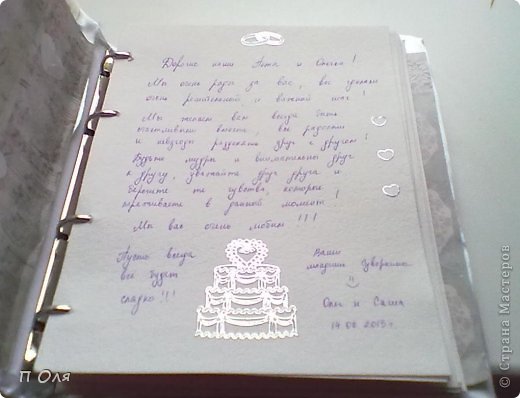 Дорогие наши Антон и
Мы очень рады за вас, вы сделали
очень решительный и важный шаг!
Мы желаем вам всегда быть
счастливыми вместе, все радости
и невзгоды разделять друг с другом!
Будьте мудры и внимательны друг
к другу, уважайте друг друга и
берегите те чувства, которые
испытываете в данный момент!
Мы вас очень любим!!!
Пусть всегда
все будет
сладко!!!
Ваши
младшие
Оля и Саша
2013 г.
П Оля
© Страна Мастеров